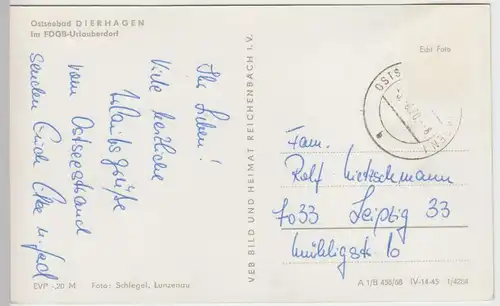 Ostseebad DIERHAGEN
Im FDGB-Urlauberdorf
Ihr Lieben!
Viele herzliche
Urlaubsgrüße
vom Ostseestrand
senden Euch
EVP -,20 M
Foto: Schlegel, Lunzenau
VEB BILD UND HEIMAT REICHENBACH I. V.
Echt Foto
OSTS
Fam.
Rolf Nietzschmann
7033 Leipzig 33
10
A 1/B 456/68 IV-14-45 1/4258